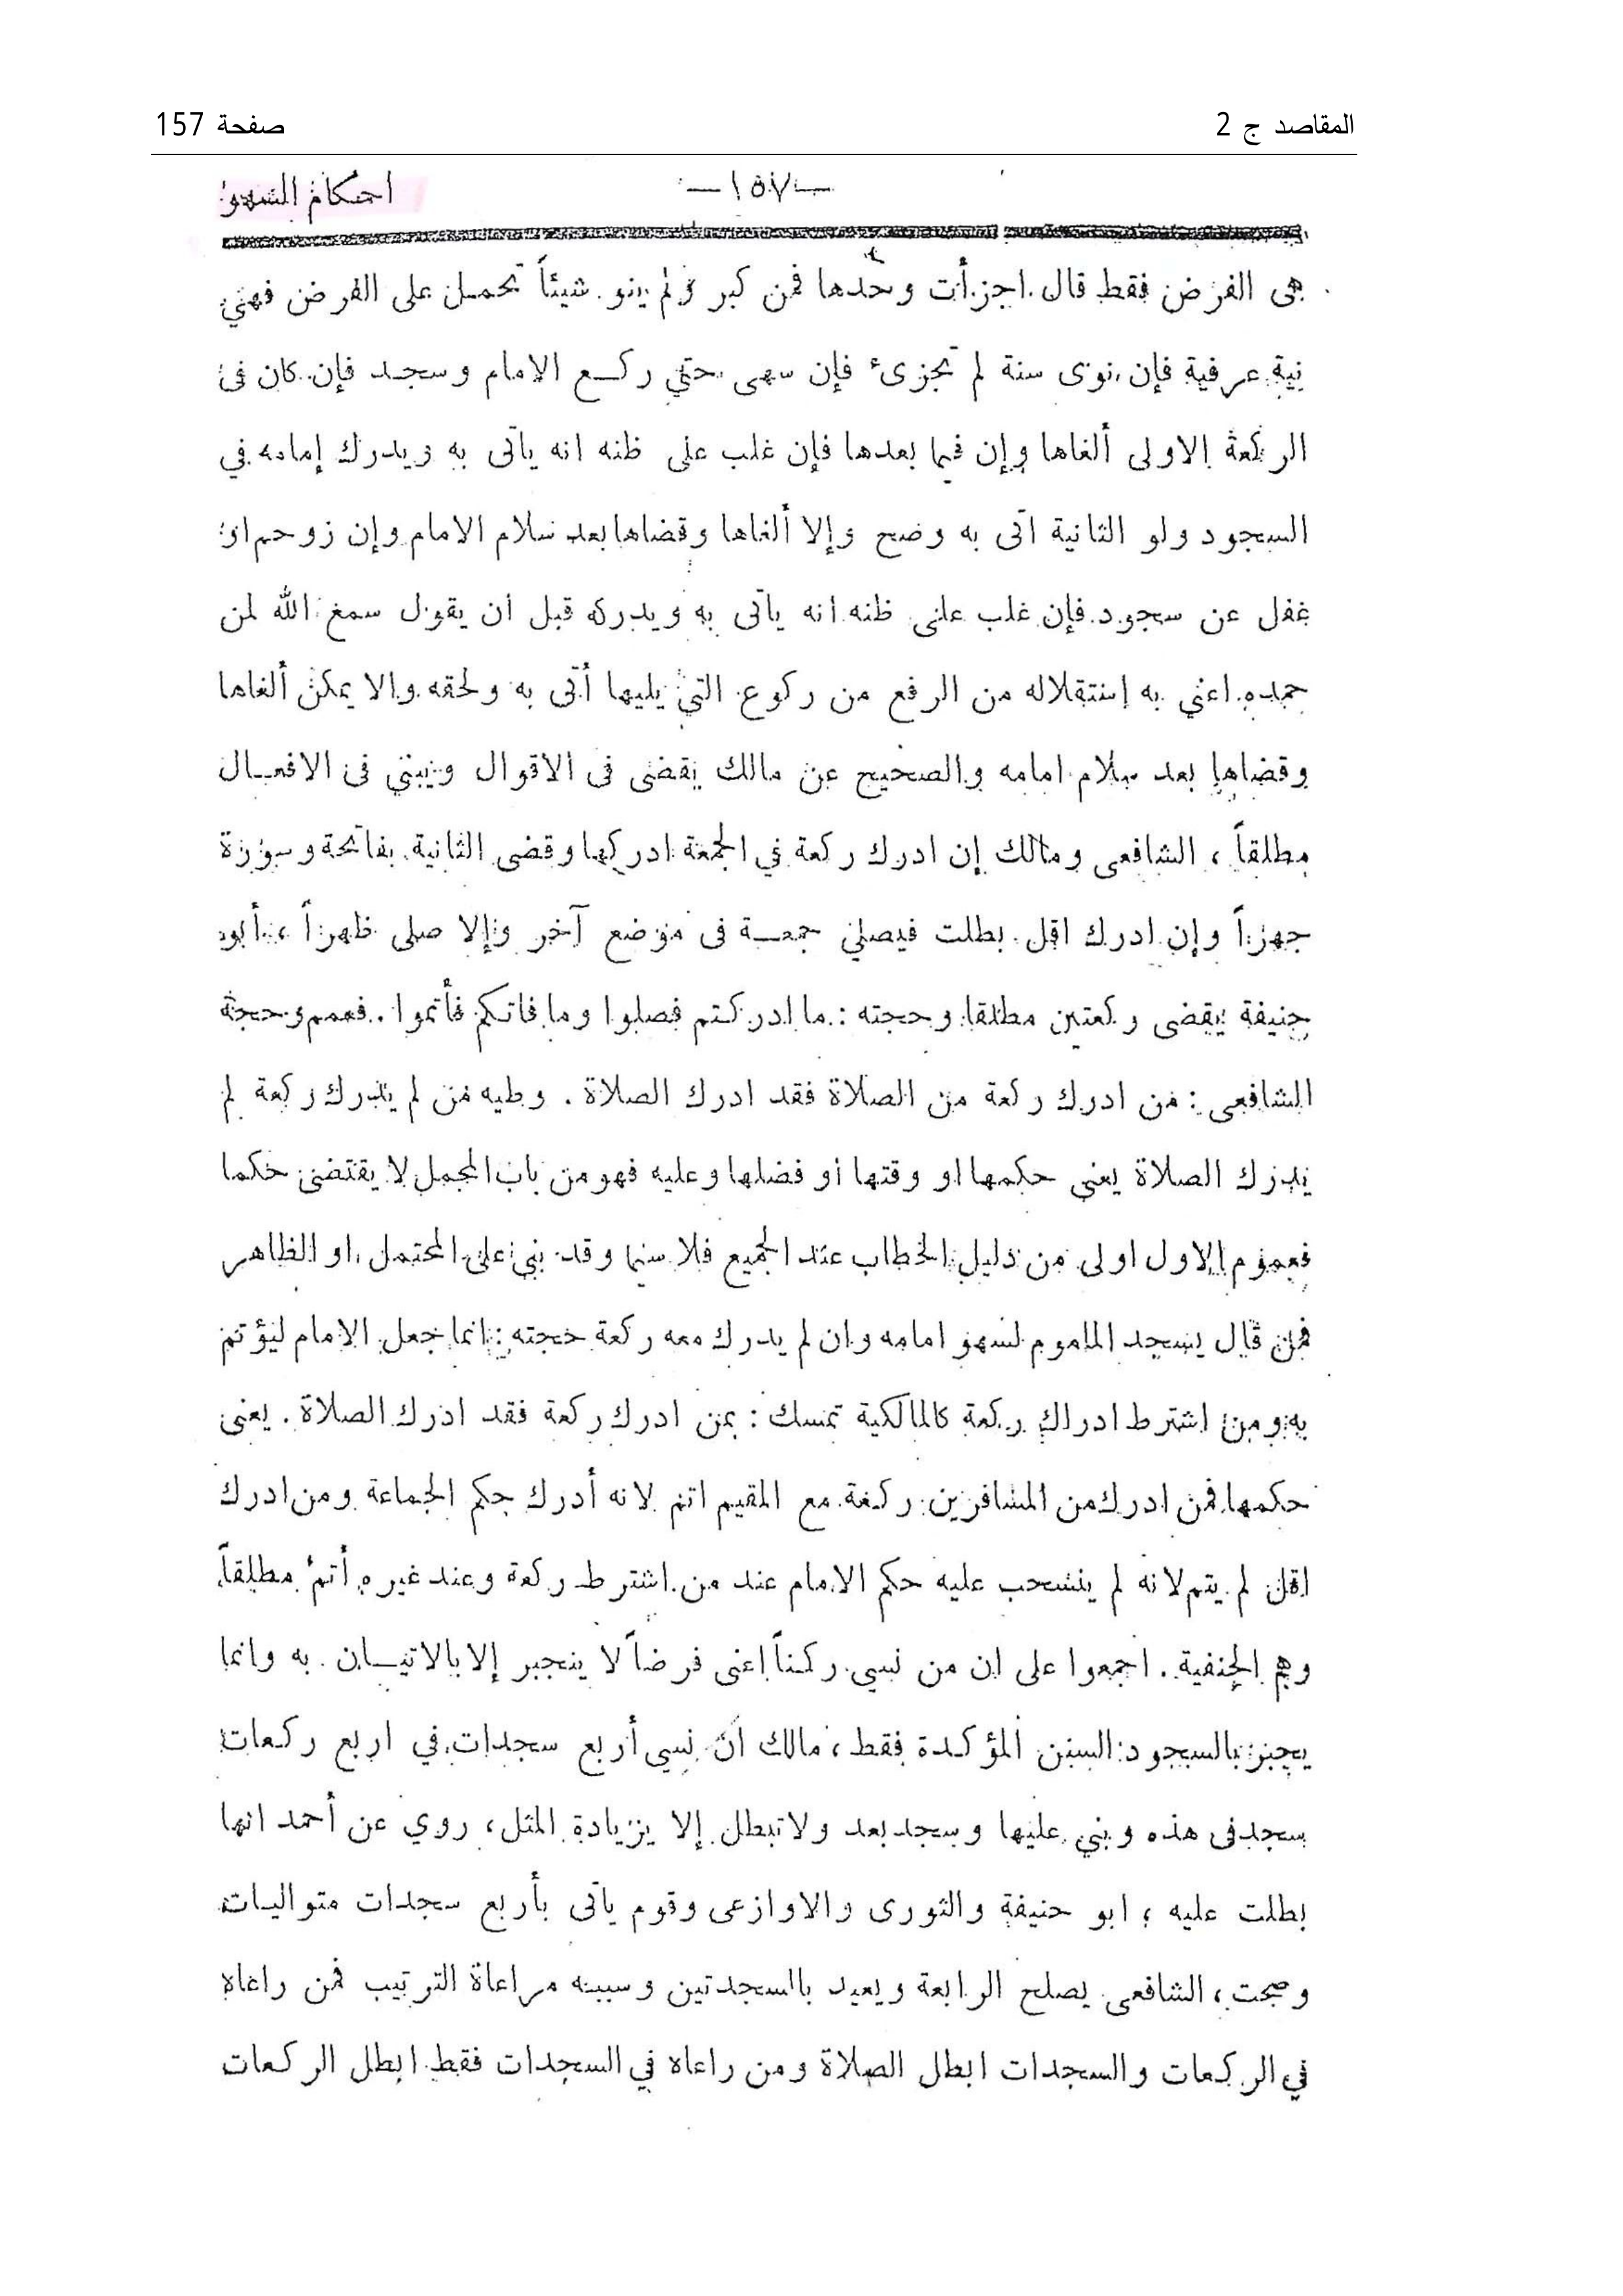 المقاصد ج 2
صفحة 157
— ١٥٧ —
احكام السهو
هى الفرض فقط قال اجزأت وحدها فمن كبر ولم ينو شيئاً تحمل على الفرض فهي
نية عرفية فإن نوى سنة لم تجزىء فإن سهى حتي ركع الامام وسجد فإن كان فى
الركعة الاولى ألغاها وإن فيما بعدها فإن غلب على ظنه انه يأتى به ويدرك إمامه في
السجود ولو الثانية اتى به وصح وإلا ألغاها وقضاها بعد سلام الامام وإن زوحم او
غفل عن سجود فإن غلب على ظنه انه يأتى به ويدركه قبل ان يقول سمع الله لمن
حمده اعني به إستقلاله من الرفع من ركوع التي يليها أتى به ولحقه والا يمكن ألغاها
وقضاها بعد سلام امامه والصحيح عن مالك يقضى فى الاقوال ويبني فى الافعال
مطلقاً ، الشافعى ومالك إن ادرك ركعة في الجمعة ادركها وقضى الثانية بفاتحة وسورة
جهراً وإن ادرك اقل بطلت فيصلي جمعة فى موضع آخر وإلا صلى ظهراً ، أبو
حنيفة يقضى ركعتين مطلقا وحجته : ما ادركتم فصلوا وما فاتكم فأتموا . فعمم وحجة
الشافعى : من ادرك ركعة من الصلاة فقد ادرك الصلاة . وطيه من لم يدرك ركعة لم
يدرك الصلاة يعني حكمها او وقتها أو فضلها وعليه فهو من باب المجمل لا يقتضى حكما
فعموم الاول اولى من دليل الخطاب عند الجميع فلا سيما وقد بني على المحتمل او الظاهر
فمن قال يسجد الماموم لسهو امامه وان لم يدرك معه ركعة حجته : انما جعل الامام ليؤتم
به ومن اشترط ادراك ركعة كالمالكية تمسك : بمن ادرك ركعة فقد ادرك الصلاة . يعنى
حكمها فمن ادرك من المسافرين ركعة مع المقيم اتم لانه أدرك حكم الجماعة ومن ادرك
اقل لم يتم لانه لم ينسحب عليه حكم الامام عند من اشترط ركعة وعند غيره أتم مطلقاً
وهم الحنفية . اجمعوا على ان من نسي ركناً اعنى فرضاً لا ينجبر إلا بالاتيان به وانما
يجبر بالسجود السنن المؤكدة فقط ، مالك ان نسي أربع سجدات في اربع ركعات
سجد فى هذه وبني عليها وسجد بعد ولا تبطل إلا بزيادة المثل ، روي عن أحمد انها
بطلت عليه ؛ ابو حنيفة والثورى والاوازعى وقوم يأتى بأربع سجدات متواليات
وصحت ، الشافعى يصلح الرابعة ويعيد بالسجدتين وسببه مراعاة الترتيب فمن راعاه
في الركعات والسجدات ابطل الصلاة ومن راعاه في السجدات فقط ابطل الركعات